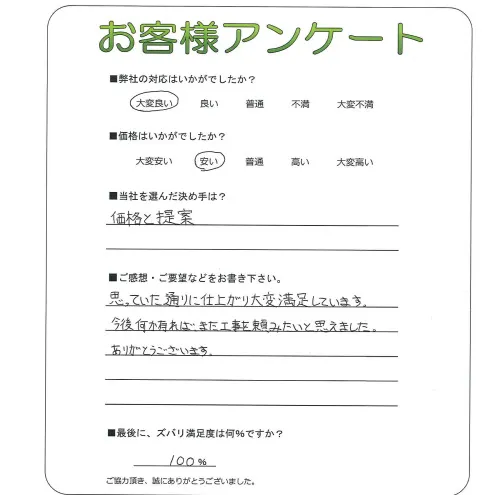 お客様アンケート
■弊社の対応はいかがでしたか？
大変良い 良い 普通 不満 大変不満
■価格はいかがでしたか？
大変安い 安い 普通 高い 大変高い
■当社を選んだ決め手は？
価格と提案
■ご感想・ご要望などをお書き下さい。
思っていた通りに仕上がり大変満足しています。
今後何か有ればまた工事を頼みたいと思えました。
ありがとうございます。
■最後に、ズバリ満足度は何％ですか？
100％
ご協力頂き、誠にありがとうございました。